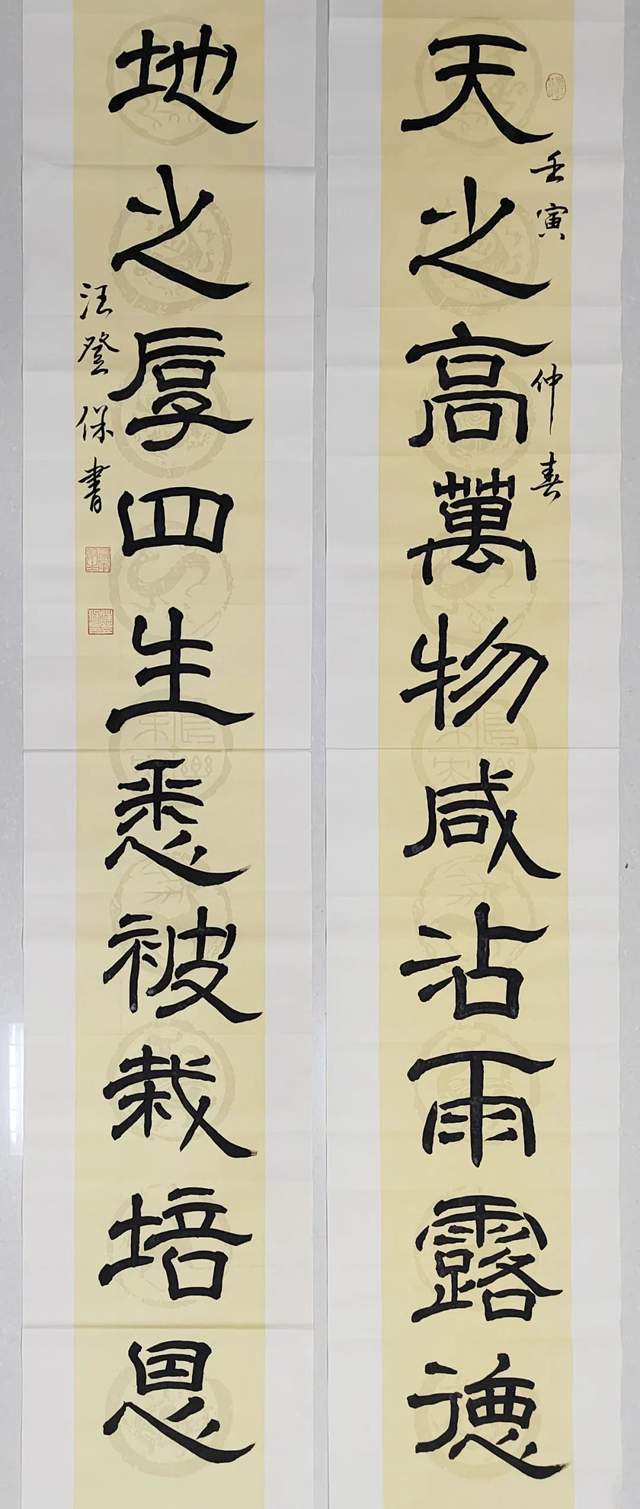 天之高萬物咸沾雨露德
壬寅 仲春
地之厚四生悉被栽培恩
汪登保書